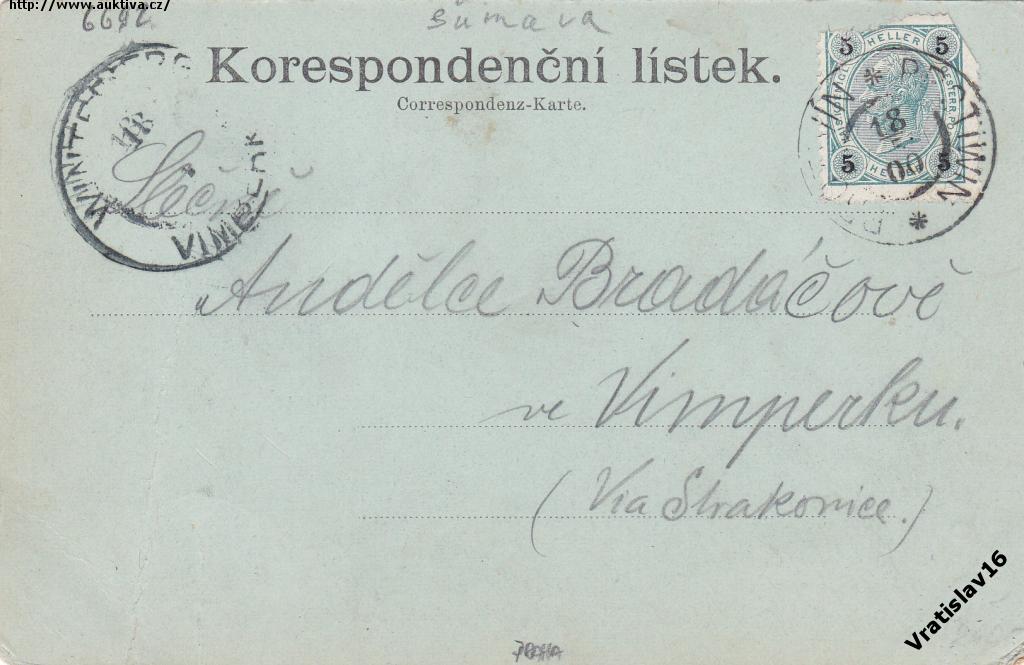 http://www.auktiva.cz/
6692
šumava
Korespondenční lístek.
Correspondenz-Karte.
5 HELLER 5
5 HELLER 5
PASTWINN
18
00
WINTERBERG
18
VIMPERK
Slečně
Andělce Bradáčově
ve Vimperku.
(Via Strakonice.)
PRAHA
Vratislav16